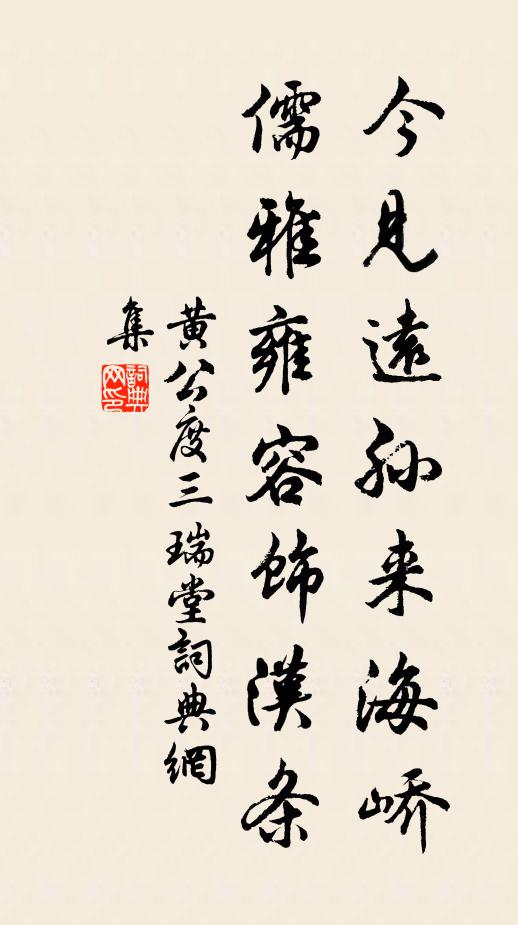 今見遠孙来海峤
儒雅雍容飾漢条
黄公度三瑞堂詞典網
集
詞典网印